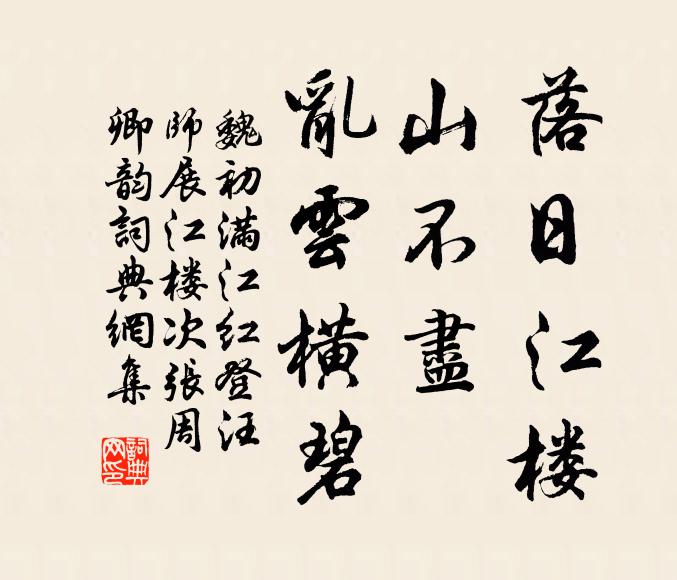 落日江楼
山不盡
亂雲橫碧
魏初满江红登汪
师展江楼次張周
卿韵詞典網集
詞典网印